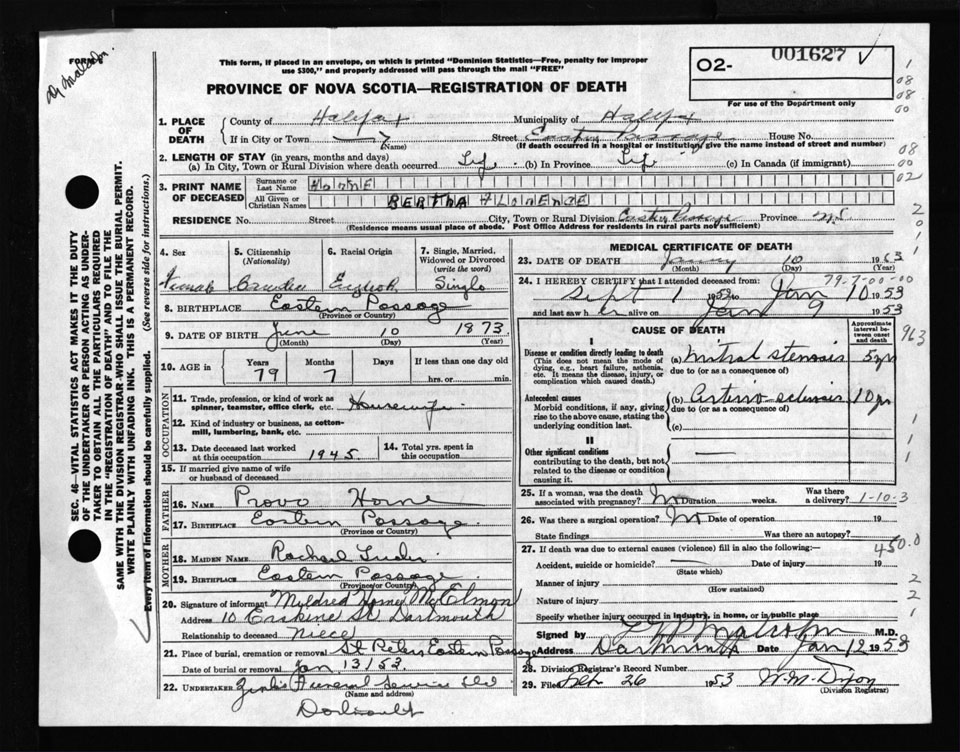 FORM
Dr Malcolm.
This form, if placed in an envelope, on which is printed "Dominion Statistics—Free, penalty for improper
use $300," and properly addressed will pass through the mail "FREE"
PROVINCE OF NOVA SCOTIA—REGISTRATION OF DEATH
02- 001627 ✓
For use of the Department only
1. PLACE OF DEATH
County of Halifax Municipality of Halifax
If in City or Town (Name) Street Eastern Passage House No.
(If death occurred in a hospital or institution, give the name instead of street and number)
2. LENGTH OF STAY (in years, months and days)
(a) In City, Town or Rural Division where death occurred Life (b) In Province Life (c) In Canada (if immigrant)
3. PRINT NAME OF DECEASED
Surname or Last Name HORNE
All Given or Christian Names BERTHA FLORENCE
RESIDENCE No. Street City, Town or Rural Division Eastern Passage Province N.S.
(Residence means usual place of abode. Post Office Address for residents in rural parts not sufficient)
4. Sex Female
5. Citizenship (Nationality) Canadian
6. Racial Origin English
7. Single, Married, Widowed or Divorced (write the word) Single
8. BIRTHPLACE Eastern Passage
(Province or Country)
9. DATE OF BIRTH June 10 1873
(Month) (Day) (Year)
10. AGE in Years 79 Months 7 Days If less than one day old hrs. or min.
OCCUPATION
11. Trade, profession, or kind of work as spinner, teamster, office clerk, etc. Housewife
12. Kind of industry or business, as cotton-mill, lumbering, bank, etc.
13. Date deceased last worked at this occupation 1945.
14. Total yrs. spent in this occupation
15. If married give name of wife or husband of deceased
FATHER
16. NAME Provo Horne
17. BIRTHPLACE Eastern Passage.
(Province or Country)
MOTHER
18. MAIDEN NAME Rachael
19. BIRTHPLACE Eastern Passage
(Province or Country)
20. Signature of informant Mildred Horne McElmon
Address 10 Erskine St. Dartmouth
Relationship to deceased niece
21. Place of burial, cremation or removal St Peters Eastern Passage
Date of burial or removal Jan 13/53.
22. UNDERTAKER Funeral Service Ltd
(Name and address)
Dartmouth
MEDICAL CERTIFICATE OF DEATH
23. DATE OF DEATH January 10 1953
(Month) (Day) (Year)
79-7-00-00
24. I HEREBY CERTIFY that I attended deceased from:
Sept 1 1952 to Jan 10 1953
and last saw her alive on Jan 9 1953
CAUSE OF DEATH
Approximate interval between onset and death
I
Disease or condition directly leading to death
(This does not mean the mode of dying, e.g., heart failure, asthenia, etc. It means the disease, injury, or complication which caused death.)
(a) mitral stenosis 5 yr
due to (or as a consequence of)
Antecedent causes
Morbid conditions, if any, giving rise to the above cause, stating the underlying condition last.
(b) Arterio-sclerosis 10 yr
due to (or as a consequence of)
(c)
II
Other significant conditions
contributing to the death, but not related to the disease or condition causing it.
25. If a woman, was the death associated with pregnancy? No Duration weeks. Was there a delivery?
1-10-3
26. Was there a surgical operation? No Date of operation 19
State findings Was there an autopsy?
27. If death was due to external causes (violence) fill in also the following:—
450.0
Accident, suicide or homicide? (State which) Date of injury 19
Manner of injury
(How sustained)
Nature of injury
Specify whether injury occurred in industry, in home, or in public place
Signed by Malcolm M.D.
Address Dartmouth Date Jan 12 1953
28. Division Registrar's Record Number
29. Filed Feb 26 1953 W. M. Dixon
(Division Registrar)
SEC. 46 VITAL STATISTICS ACT MAKES IT THE DUTY
OF THE UNDERTAKER OR PERSON ACTING AS UNDER-
TAKER TO OBTAIN ALL THE PARTICULARS REQUIRED
IN THE "REGISTRATION OF DEATH" AND TO FILE THE
SAME WITH THE DIVISION REGISTRAR WHO SHALL ISSUE THE BURIAL PERMIT.
WRITE PLAINLY WITH UNFADING INK. THIS IS A PERMANENT RECORD.
Every item of information should be carefully supplied. (See reverse side for instructions.)
1
08
08
00
08
00
02
2
0
1
1
963
1
1
1
2
2
1